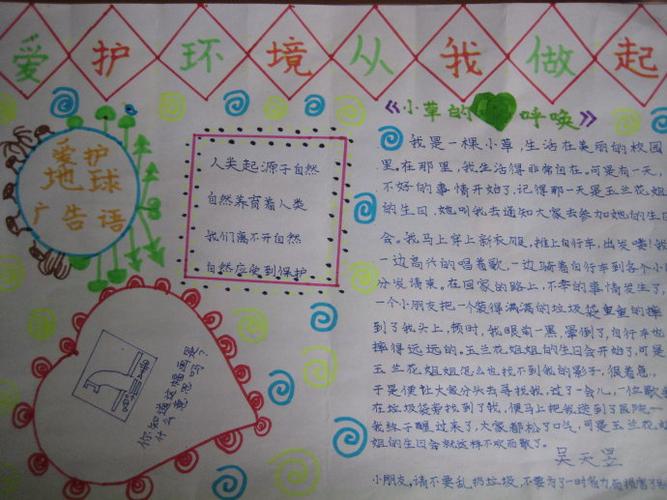 爱护环境从我做起
爱护
地球
广告语
人类起源于自然
自然养育着人类
我们离不开自然
自然应受到保护
你知道这幅画是
什么意思吗?
《小草的呼唤》
我是一棵小草,生活在美丽的校园
里。在那里,我生活得非常自在。可是有一天,
不好的事情开始了,记得那一天是玉兰花姐
的生日,她叫我去通知大家去参加她的生日
会。我马上穿上新衣服,推上自行车,出发喽!我
一边高兴的唱着歌,一边骑着自行车到各个小
分发请柬。在回家的路上,不幸的事情发生了,
一个小朋友把一个装得满满的垃圾袋重重的摔
到了我头上,顿时,我眼前一黑,晕倒了,自行车也
摔得远远的。玉兰花姐姐的生日会开始了,可是
玉兰花姐姐怎么也找不到我的影子,很着急,
于是便让大家分头去寻找我,过了一会儿,一位
在垃圾袋旁找到了我,便马上把我送到了医院
我终于醒过来了,大家都松了口气,可是玉兰花姐
姐的生日会就这样不欢而散了。
吴天昱
小朋友,请不要乱扔垃圾,不要为了一时省力而